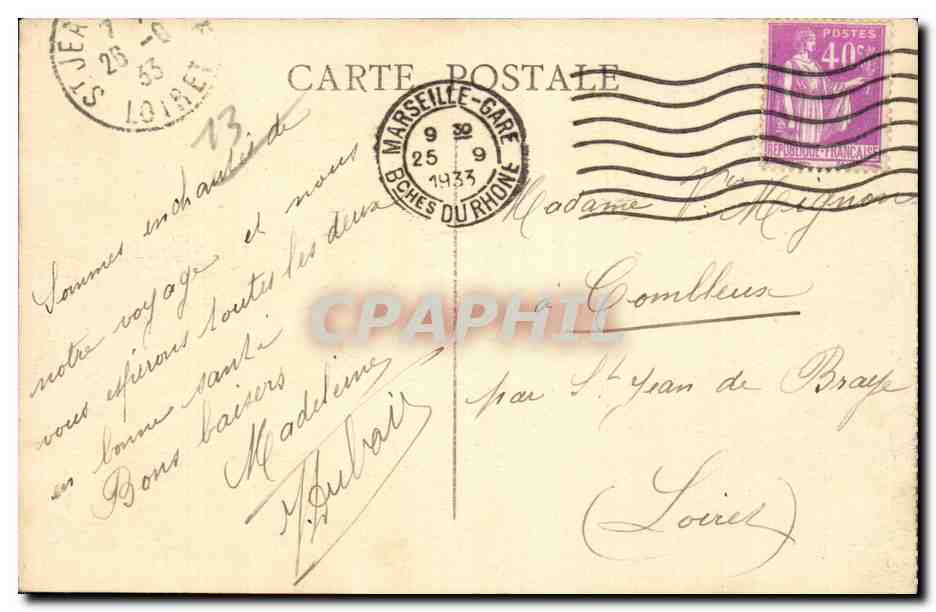 ST JEA
7
26 -9
33
LOIRET
CARTE POSTALE
MARSEILLE-GARE
9 30
25 9
1933
BCHES DU RHONE
POSTES
40c
REPUBLIQUE-FRANÇAISE
13
Sommes enchantés de
notre voyage et nous
vous espérons toutes les deux
en bonne santé
Bons baisers
Madeleine
Madame Vve Mignon
à Combleux
par St Jean de Braye
(Loiret)
CPAPHIL